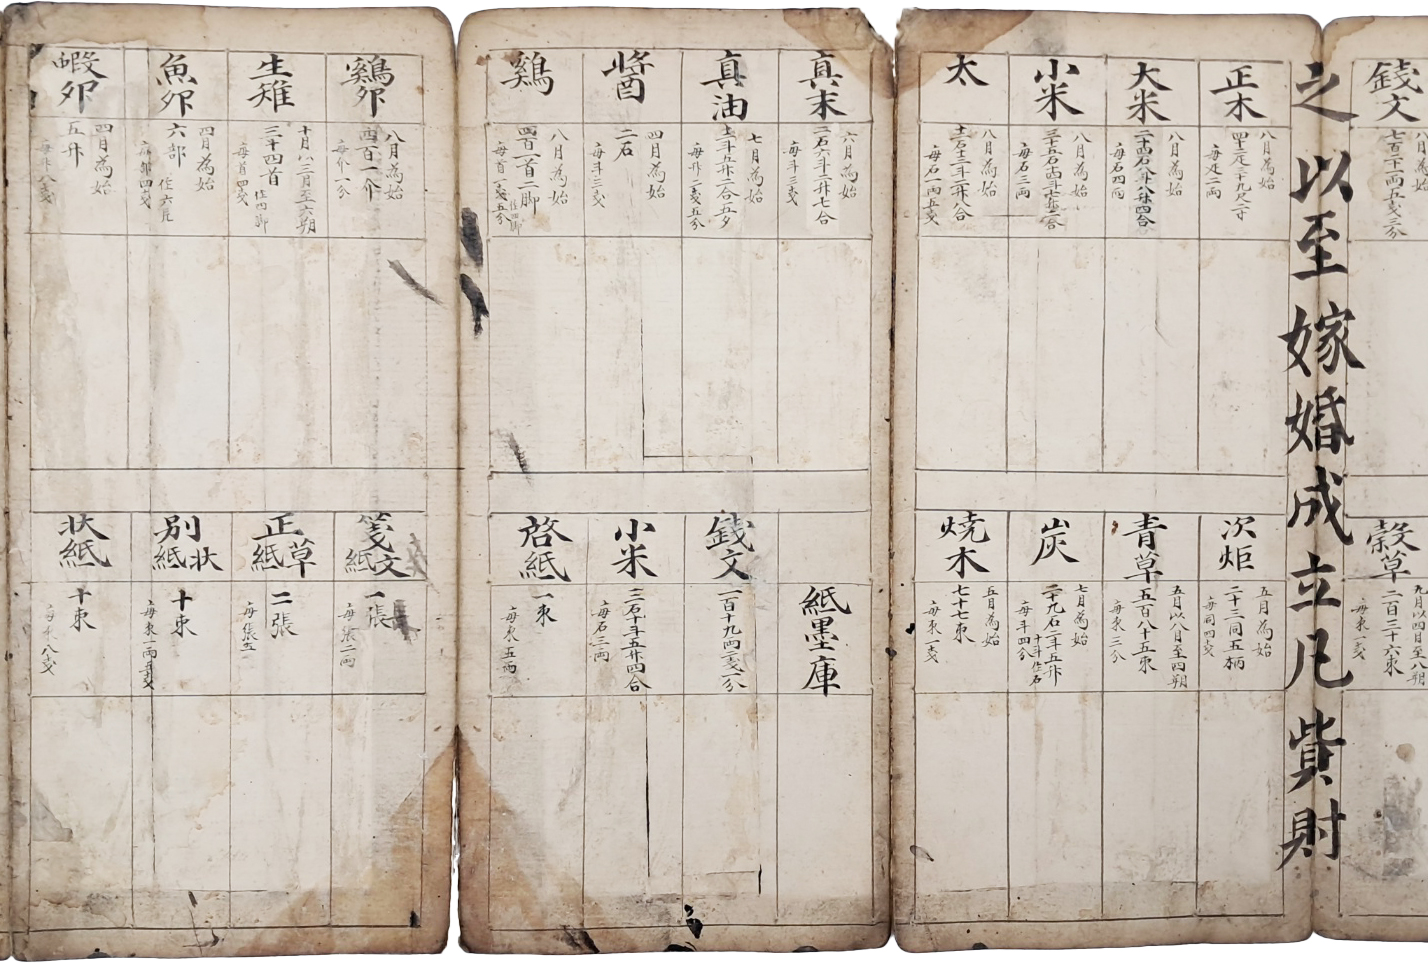 錢文
七百二十二両五戔三分
穀草
九月以四日至八朔
二百三十六束
每束一戔
之以至嫁婚成立凡貲財
正木
八月為始
四十三疋三十九尺二寸
每疋二両
大米
八月為始
二十四石八斗八升四合
每石四両
小米
八月為始
每石三両
太
八月為始
每石一両五戔
次炬
五月為始
二十三同五柄
每同四戔
青草
五月以八月至四朔
五百八十五束
每束三分
炭
七月為始
二十九石二斗五升
每斗四分
十斗作石
燒木
五月為始
七十七束
每束一戔
真末
六月為始
二石六斗二升七合
每斗三戔
真油
七月為始
每升二戔五分
醬
四月為始
二石
每斗三戔
鷄
八月為始
四百一首二脚
每首一戔五分
紙墨庫
錢文
一百十九両二戔一分
小米
每石三両
啓紙
一束
每束五両
鷄卵
八月為始
四百一介
每介一分
生雉
十月以三月至六朔
三十四首
每首四戔
作四脚
魚卵
四月為始
六部
每部四戔
蝦卵
四月為始
五升
每升八戔
箋文紙
一張
每張二両
正草紙
二張
別狀紙
十束
每束一両五戔
狀紙
十束
每束八戔